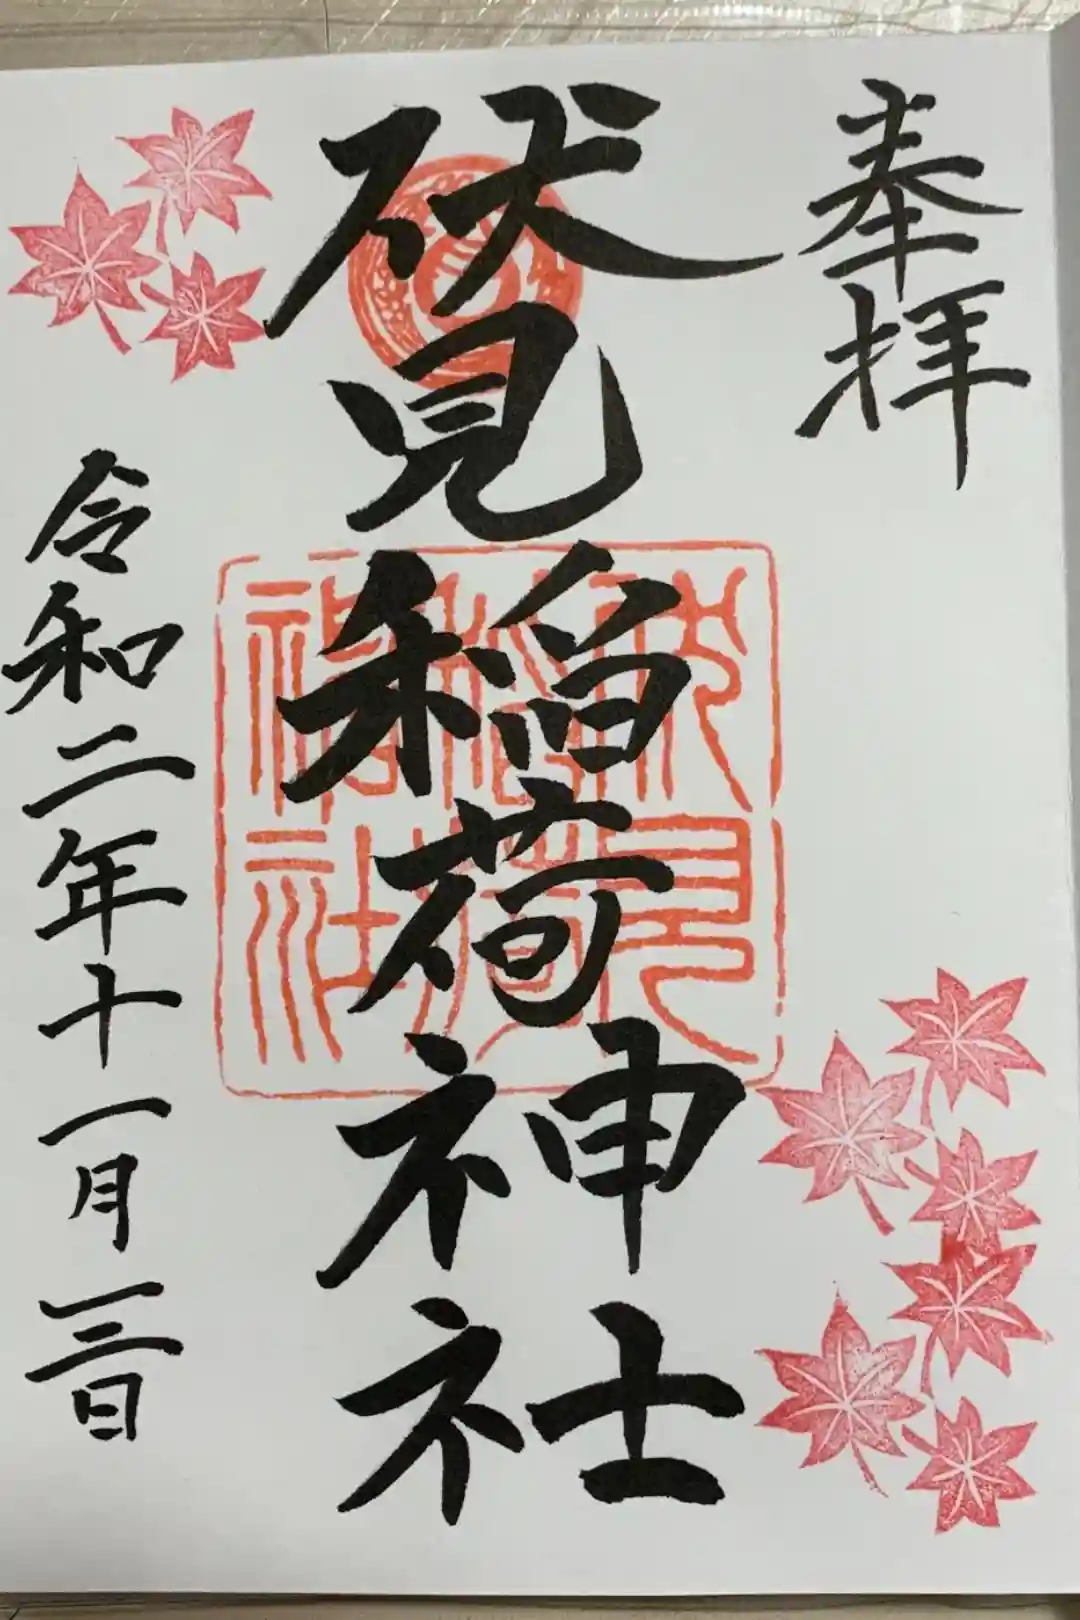 奉拝
伏見稲荷神社
令和二年十一月三日
伏見
稲荷
神社